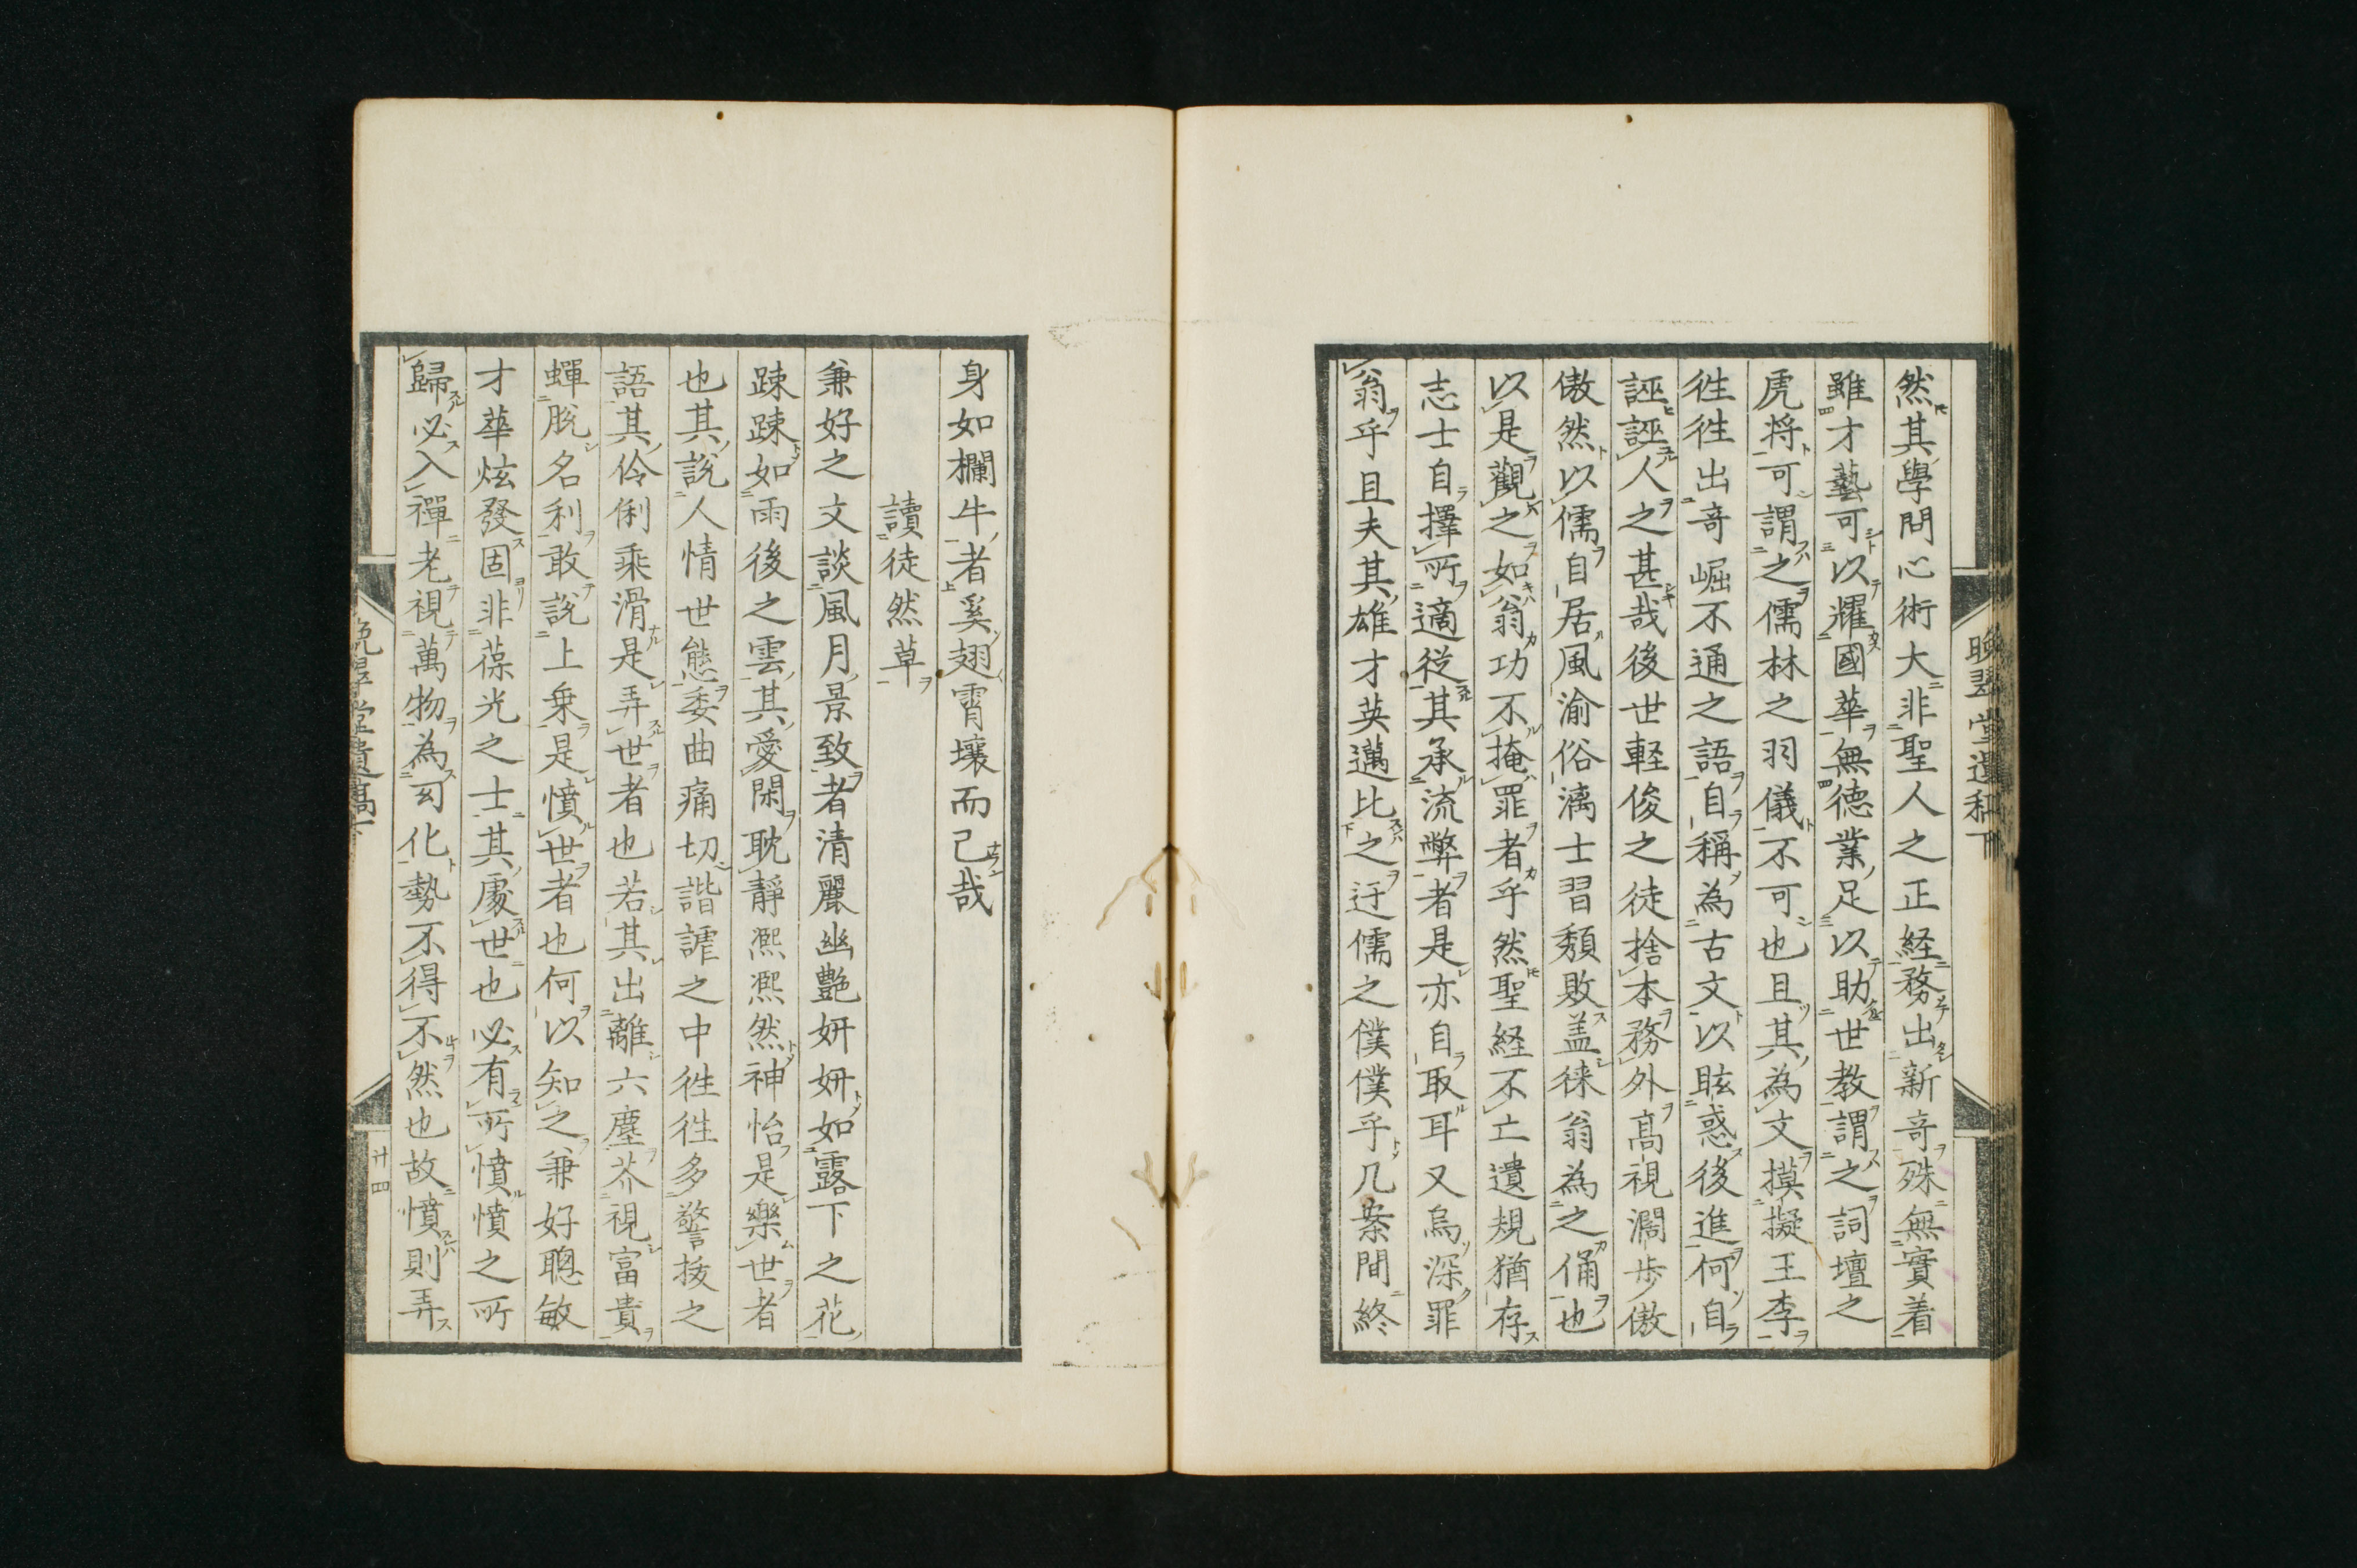 然其學問心術大非聖人之正経務出新奇殊無實着
雖才藝可以耀國華無徳業足以助世教謂之詞壇之
虎将可謂之儒林之羽儀不可也且其為文摸擬王李
徃徃出奇崛不通之語自稱為古文以眩惑後進何自
誣誣人之甚哉後世軽俊之徒捨本務外髙視濶歩傲
傲然以儒自居風渝俗漓士習頽敗盖徠翁為之俑也
以是觀之如翁功不掩罪者乎然聖経不亡遺規猶存
志士自擇所適從其承流弊者是亦自取耳又烏深罪
翁乎且夫其雄才英邁比之迂儒之僕僕乎几案間終
身如欄牛者奚翅霄壤而已哉
讀徒然草
兼好之文談風月景致者清麗幽艶妍妍如露下之花
踈踈如雨後之雲其愛閑耽靜凞凞然神怡是樂世者
也其說人情世態委曲痛切諧謔之中徃徃多警抜之
語其伶俐乘滑是弄世者也若其出離六塵芥視富貴
蟬脫名利敢說上乗是憤世者也何以知之兼好聰敏
才華炫發固非葆光之士其處世也必有所憤憤之所
歸必入禪老視萬物為幻化勢不得不然也故憤則弄
堂遺稿下
廿四